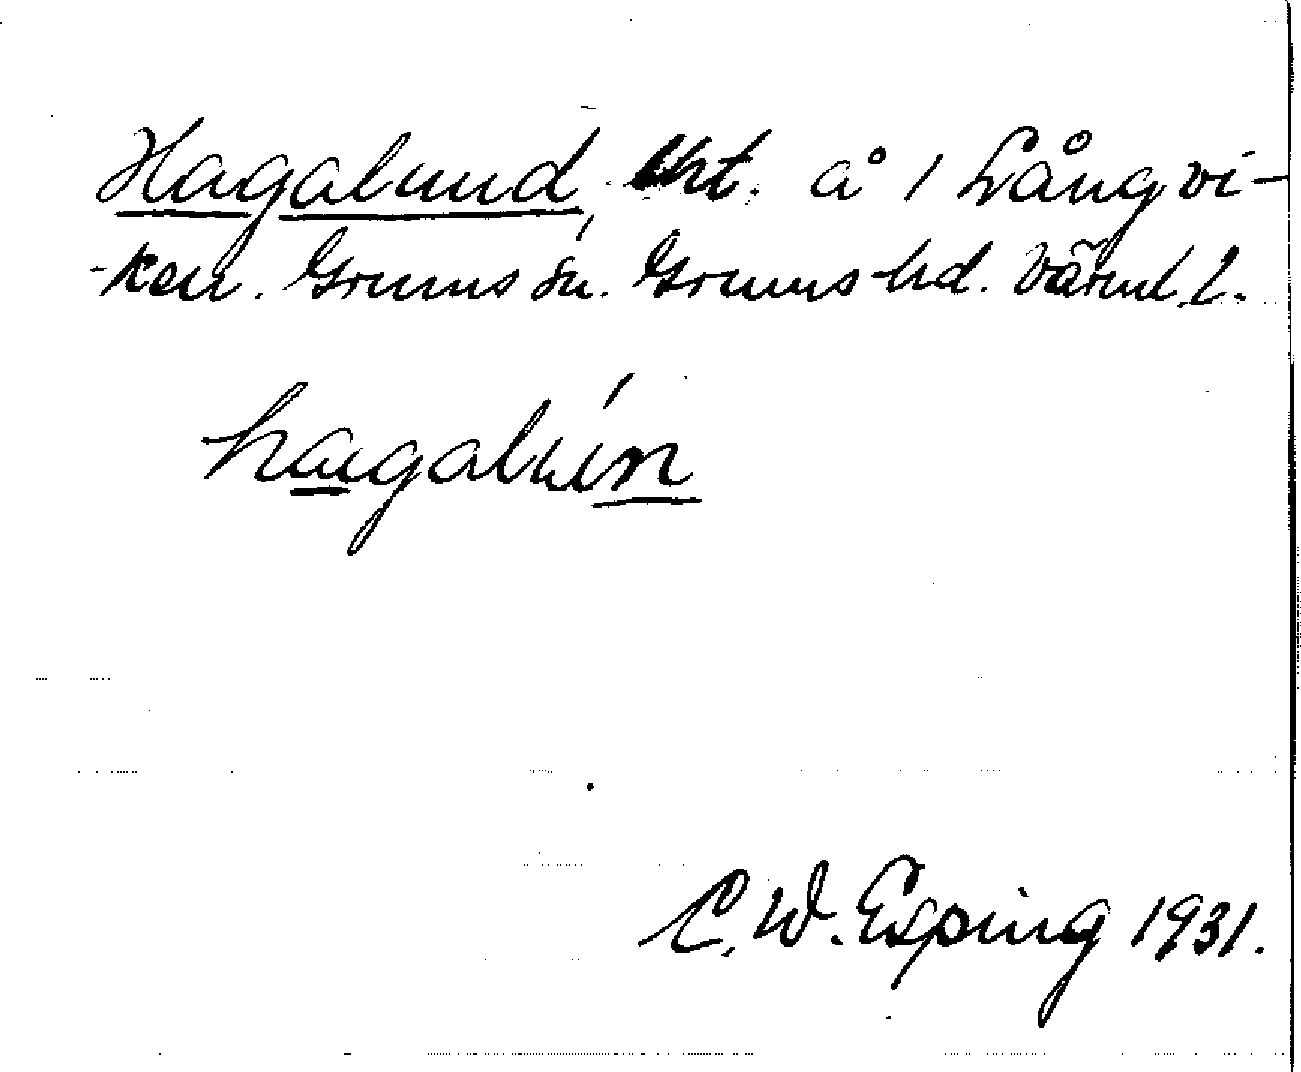 Hagalund, lht. å 1 Långvi-
-ken. Grums sn. Grums hd. Värml. l.
hagalún
C. W. Esping 1931.